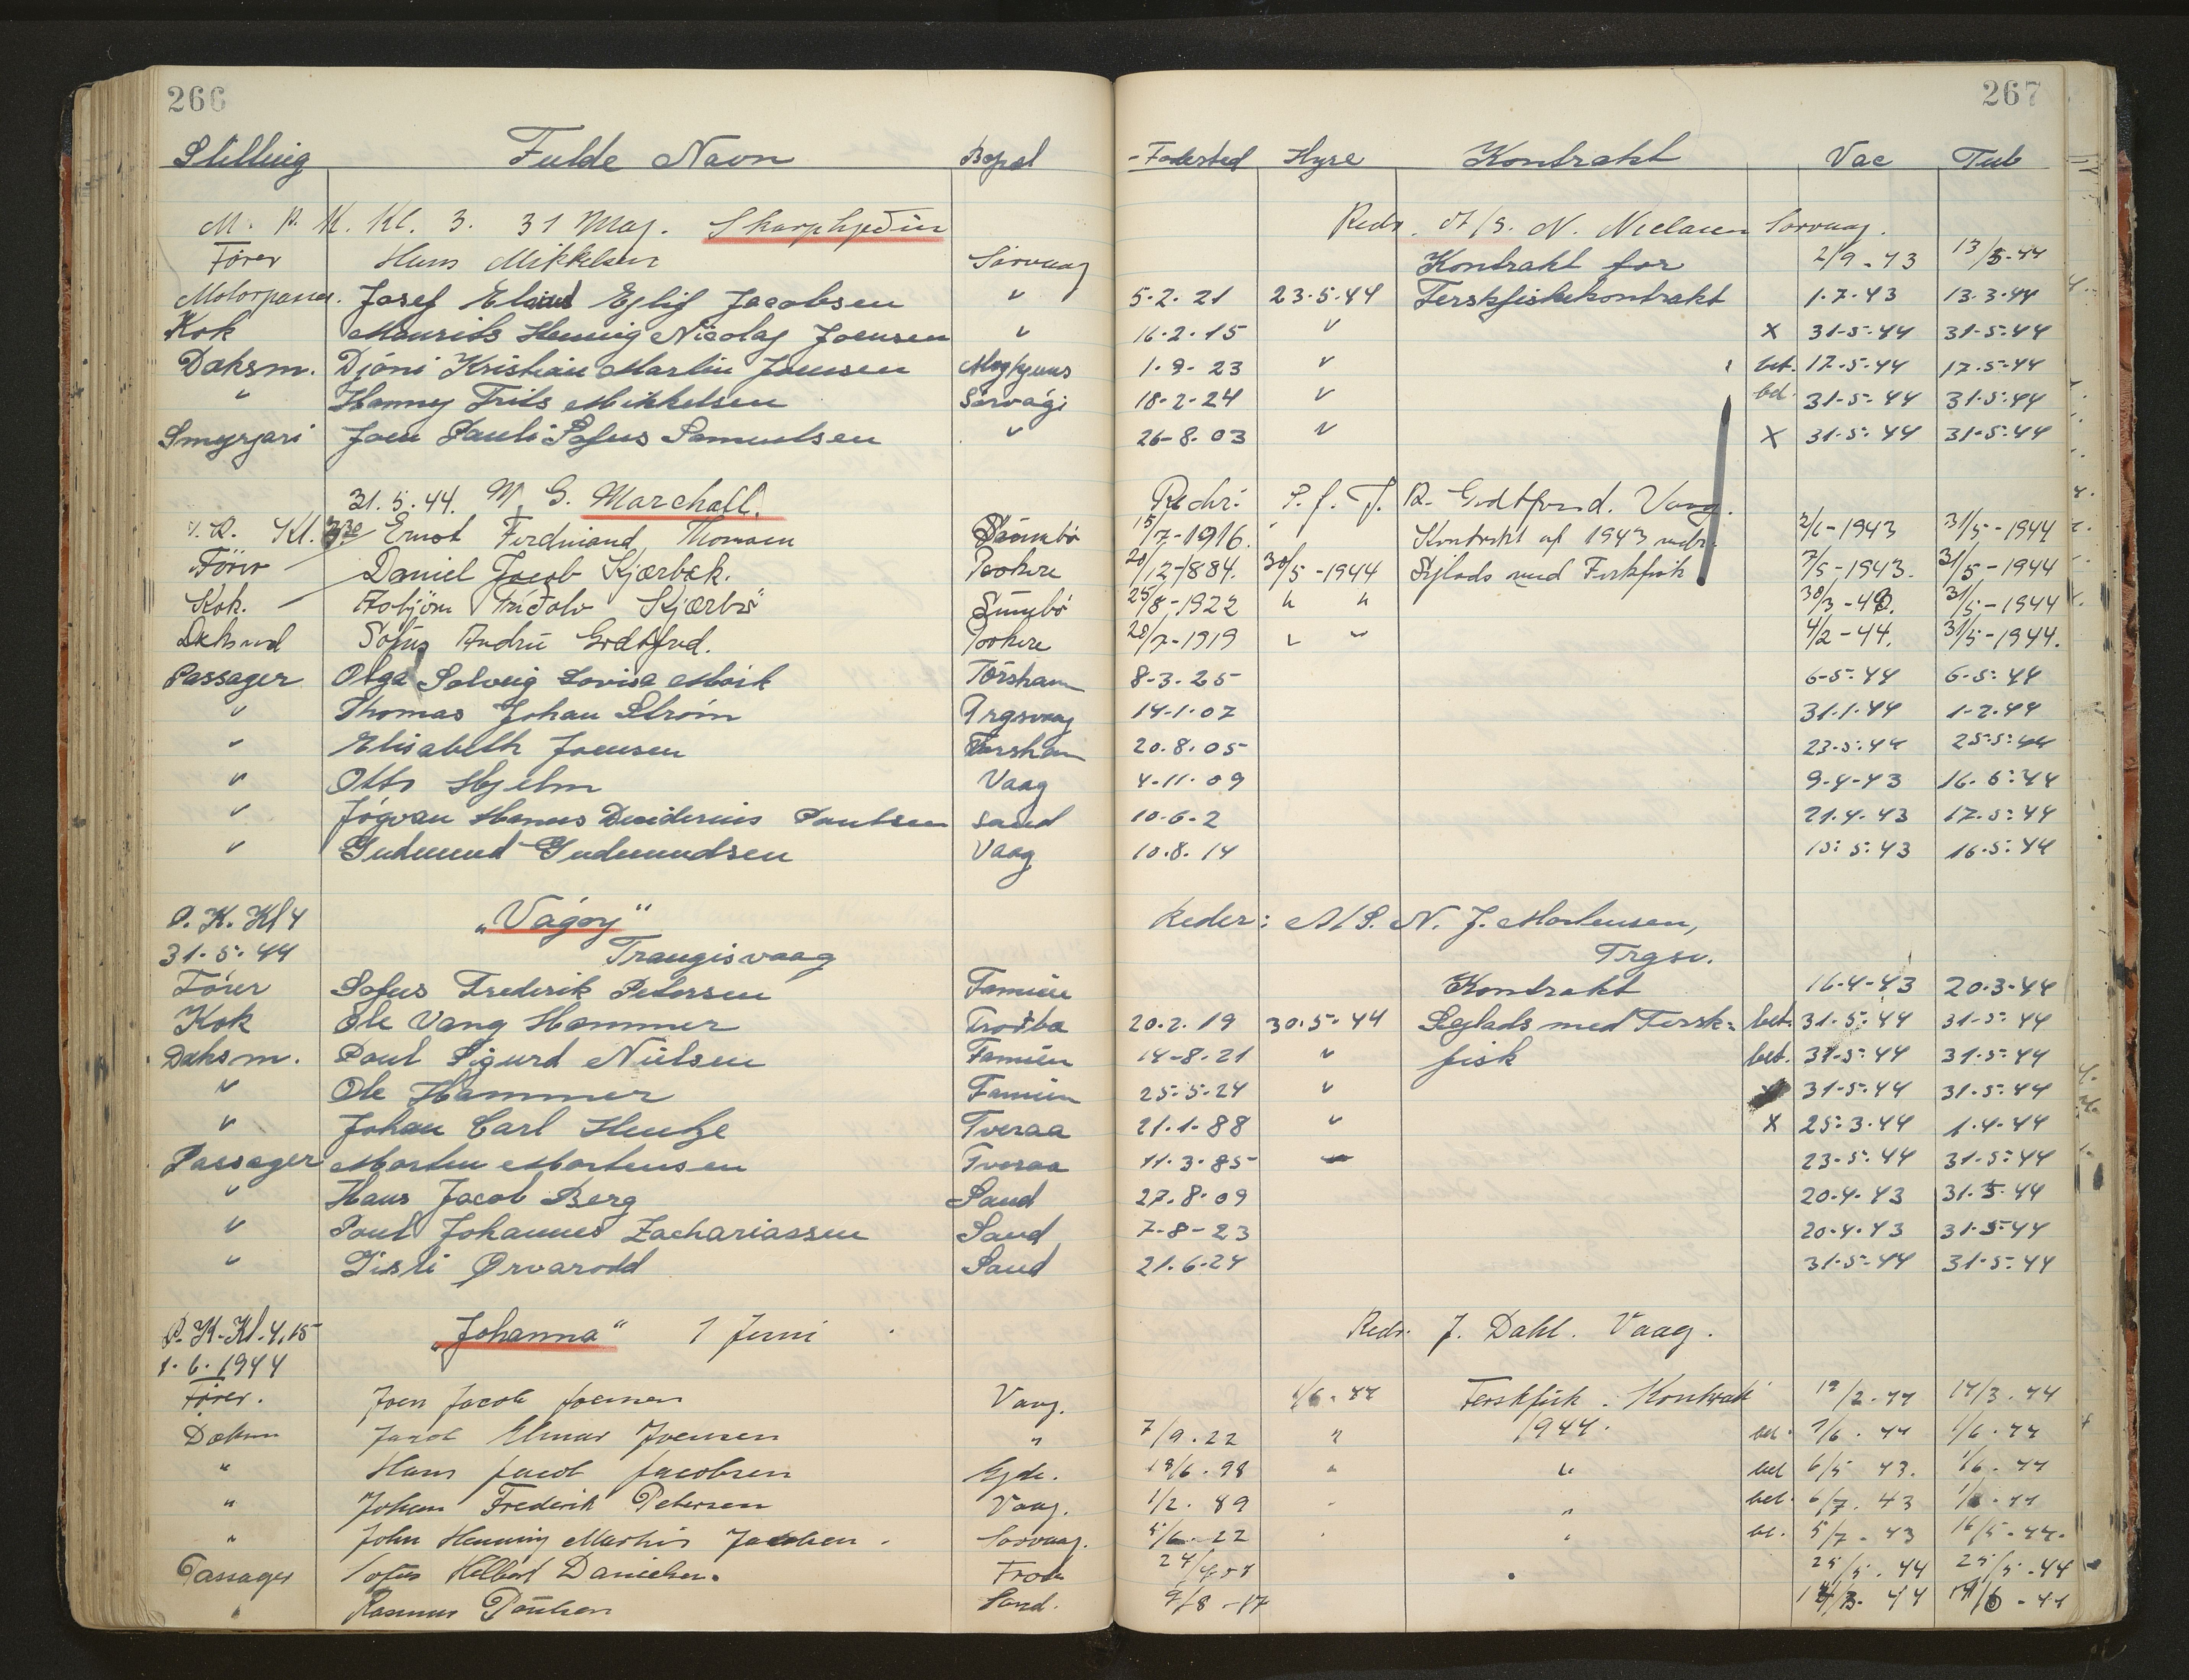 266 267
Stilling Fulde Navn Bopæl Fødested Hyre Kontrakt Vac Tub
M. P. K. Kl. 3. 31 Maj. Skarphjeðin Redr. A/S. N. Nielsen Sorvaag.
Fører Hans Mikkelsen Sorvaag Kontrakt for 2/9-43 13/5-44
Motorpasser. Josef Eliud Ejlif Jacobsen " 5.2.21 23.5.44 Ferskfiskekontrakt 1.7.43 13.3.44
Kok Maurits Hennig Nicolaj Joensen " 16.2.15 " x 31-5-44 31-5-44
Daksm. Djóni Kristian Martin Joensen 1-9-23 " bet. 17-5-44 17-5-44
" Hanney Frits Mikkelsen Sørvági 18-2-24 " bet. 31-5-44 31-5-44
Smyrjari Joen Pauli Sofus Samuelsen " 26-8-03 " X 31-5-44 31-5-44
31.5.44. M/S. Marchall. Redr: P. f. J. R. Godtfred. Vaag.
P. Kl. Ernst Ferdinand Thomsen Súmbø 15/7-1916. Kontrakt af 1943 vedr. 2/6-1943 31/5-1944
Fører Daniel Jacob Kjærbæk. Porkere 20/12-1884. 30/5-1944 Sejlads med Ferskfisk 7/5-1943. 31/5-1944
Kok. Asbjörn Fríðolv Kjærbo Sumbö 25/8-1922 " " 30/3-43. 31/5-1944
Dæksmd Sofus Andrú Godtfred. Porkere 20/7-1919 " " 4/2-44. 31/5-1944.
Passager Olga Solveig Lovisa Mørk Tórshavn 8-3-25 6-5-44 6-5-44
" Thomas Johan Strøm Trgsvaag 14-1-07 31.1.44 1-2-44
" Elisabeth Joensen Torshavn 20.8.05 23-5-44 25-5-44
" Otto Hjelm Vaag 4-11-09 9-4-43 16-5-44
" Jógvan Hanus Desiderius Poulsen Sand 10-6-2 21.4.43 17-5-44
" Gudmund Gudmundsen Vaag 10.8.14 15-5-43 16-5-44
P. K. Kl 4 "Vágoy" Reder: A/S. N. J. Mortensen,
31-5-44 Trangisvaag Trgsv.
Fører Sofus Frederik Petersen Famien Kontrakt 16-4-43 20-3-44
Kok Ole Vang Hammer Froðba 20.2.19 30.5.44 Sejlads med Fersk- bet. 31-5-44 31-5-44
Daksm. Poul Sigurd Nielsen Famien 14-8-21 " fisk bet. 31-5-44 31-5-44
" Ole Hammer Famien 25-5-24 " 31-5-44 31-5-44
" Johan Carl Hentze Tveraa 21.1.88 " X 25-3-44 1-4-44
Passager Morten Mortensen Tveraa 11.3.85 23-5-44 31-5-44
" Hans Jacob Berg Sand 27.8.09 20-4-43 31.5.44
" Poul Johannes Zachariassen Sand 7-8-23 20-4-43 31-5-44
" Gisli Ørvarodd Sand 21.6.24 31-5-44 31-5-44
P. K. Kl. 4,15 "Johanna" 1 Juni Redr. J. Dahl. Vaag.
1.6.1944
Fører. Joen Jacob Joensen Vaag. 1/6-44 Ferskfisk. Kontrakt 19/2-44 14/3-44
Dæksm Jacob Elmar Joensen " 7/9.22 " 1944. bet. 1/6.44
" Hans Jacob Jacobsen Ejde. 18/6.98 " " bet 6/5 43. 1/6-44
" Johan Frederik Petersen Vaag. 1/2.89 " " bet. 6/7.43
" John Henning Martin Jacobsen. Sorvaag. 5/6-22 " " be. 5/7-43 16/5-44.
Passager Sofus Helbert Danielsen. Froð 25/5.44 25/5-44
" Rasmus Poulsen Sand. 9/8-17